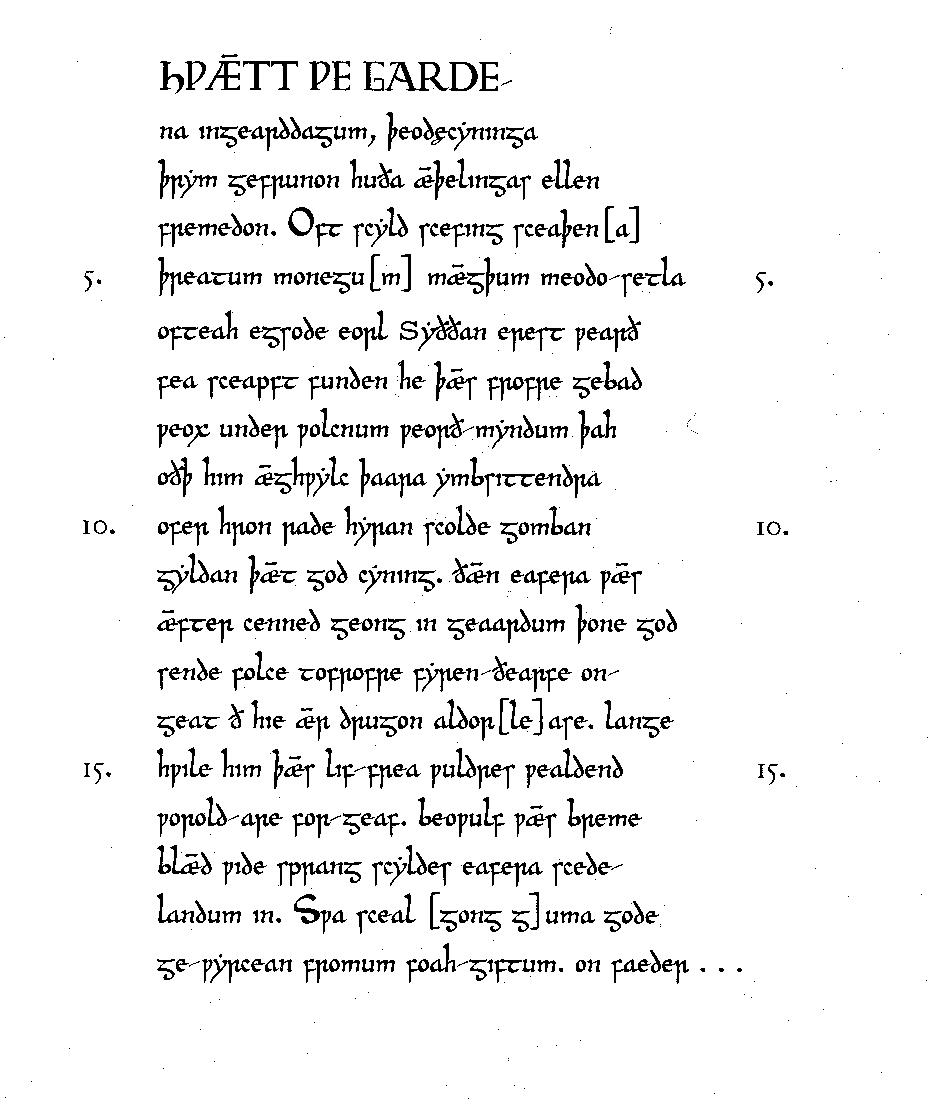 HǷǢTT ǷE GARDE-
na ingearddagum, þeodęcẏninga
þrẏm gefrunon huða ǣþelingas ellen
fremedon. Oft scẏld scefing sceaþen[a]
5. þreatum monegu[m] mǣgþum meodo-setla 5.
ofteah egsode eorl Sẏððan erest ƿearð
fea sceaƿft funden he þǣs frofre gebad
ƿeox under ƿolcnum ƿeorð-mẏndum þah
oðþ him ǣghƿẏlc þaara ẏmbsittendra
10. ofer hron rade hẏran scolde gomban 10.
gẏldan þǣt god cẏning. ðǣn eafera ƿǣs
ǣfter cenned geong in geaardum þone god
sende folce tofrofre fẏren-ðearfe on-
geat ð hie ǣr drugon aldor[le]ase. lange
15. hƿile him þǣs lif-frea ƿuldres ƿealdend 15.
ƿorold-are for-geaf. beoƿulf ƿǣs breme
blǣd ƿide sƿrang scẏldes eafera scede-
landum in. Sƿa sceal [gong g]uma gode
ge-ƿẏrcean fromum foah-giftum. on faeder . . .